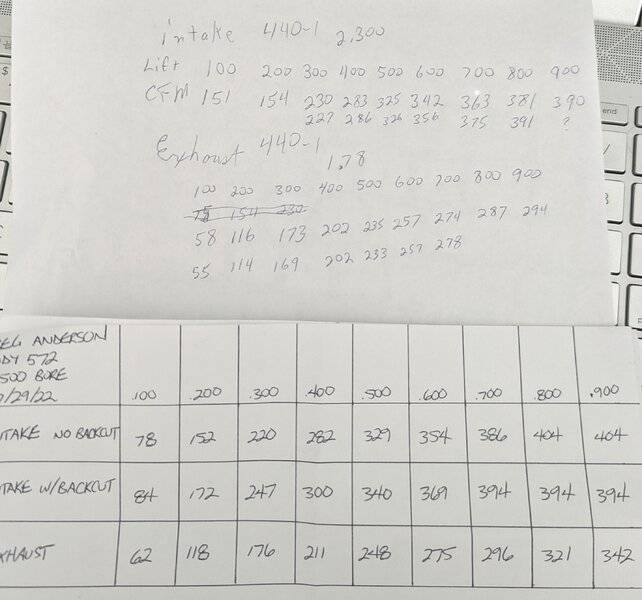 intake 440-1 2,300
Lift 100 200 300 400 500 600 700 800 900
CFM 151 154 230 283 325 342 363 381 390
227 286 326 356 375 391 ?
Exhaust 440-1 1,78
100 200 300 400 500 600 700 800 900
75 154 230
58 116 173 202 235 257 274 287 294
55 114 169 202 233 257 278
EG ANDERSON
DY 572
500 BORE
/29/22
.100 .200 .300 .400 .500 .600 .700 .800 .900
TAKE NO BACKCUT 78 152 220 282 329 354 386 404 404
TAKE W/BACKCUT 84 172 247 300 340 369 394 394 394
XHAUST 62 118 176 211 248 275 296 321 342
end
$